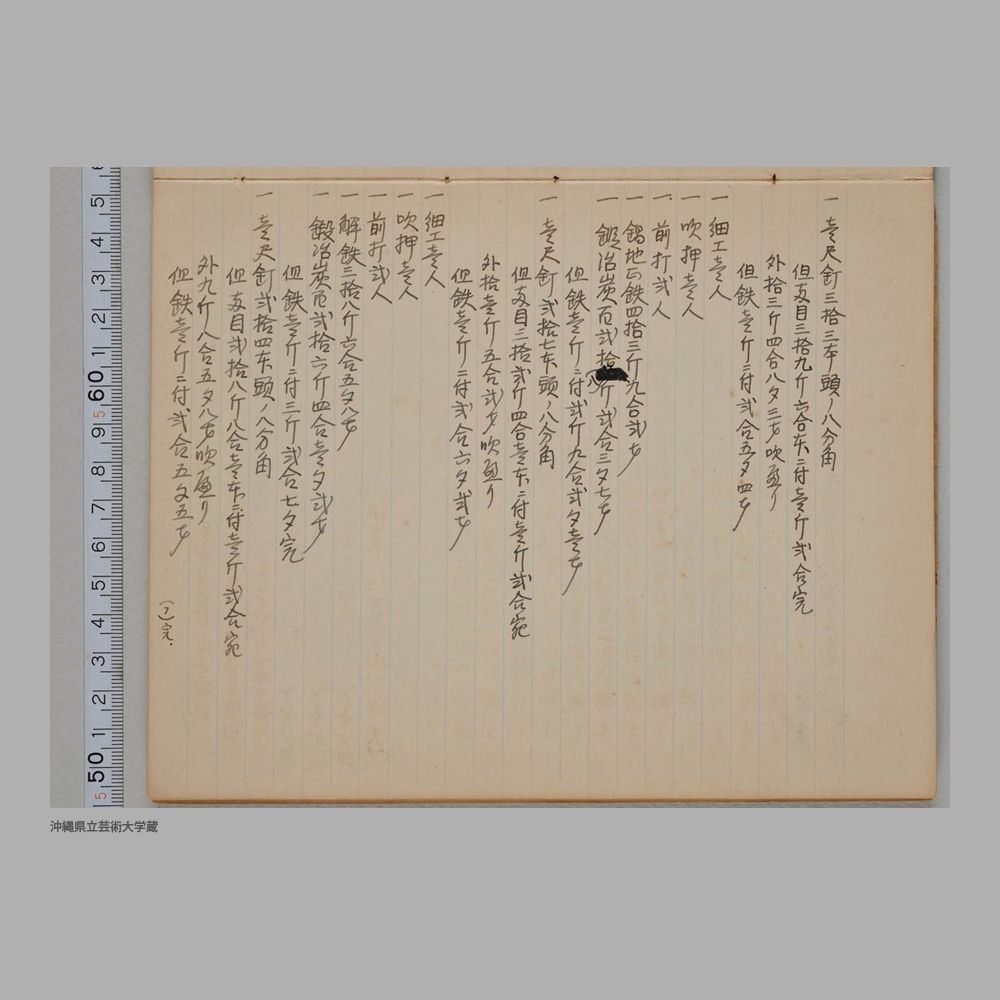 一 壱尺釘三拾三本頭ノ八分角
但支目三拾九斤六合本ニ付壱斤弐合完
外拾三斤四合八夕三才吹減り
但鉄壱斤ニ付弐合五夕四才
一 細工壱人
一 吹押壱人
一 前打弐人
一 地正鉄四拾三斤九合弐才
一 鍛冶炭百弐拾八斤弐合三夕七才
但鉄壱斤ニ付弐斤九合弐夕壱才
一 壱尺釘弐拾七本頭ノ八分角
但支目三拾弐斤四合壱本ニ付壱斤弐合宛
外拾壱斤五合弐才吹減り
但鉄壱斤ニ付弐合六夕弐才
一 細工壱人
一 吹押壱人
一 前打弐人
一 解鉄三拾八斤六合五夕八才
一 鍛冶炭百弐拾六斤四合壱夕弐才
但鉄壱斤ニ付三斤弐合七夕完
一 壱尺釘弐拾四本頭ノ八分角
但支目弐拾八斤八合壱本ニ付壱斤弐合宛
外九斤八合五夕八才吹減り
但鉄壱斤ニ付弐合五夕五才
50 1 2 3 4 5 6 7 8 9 60 1 2 3 4 5
沖縄県立芸術大学蔵